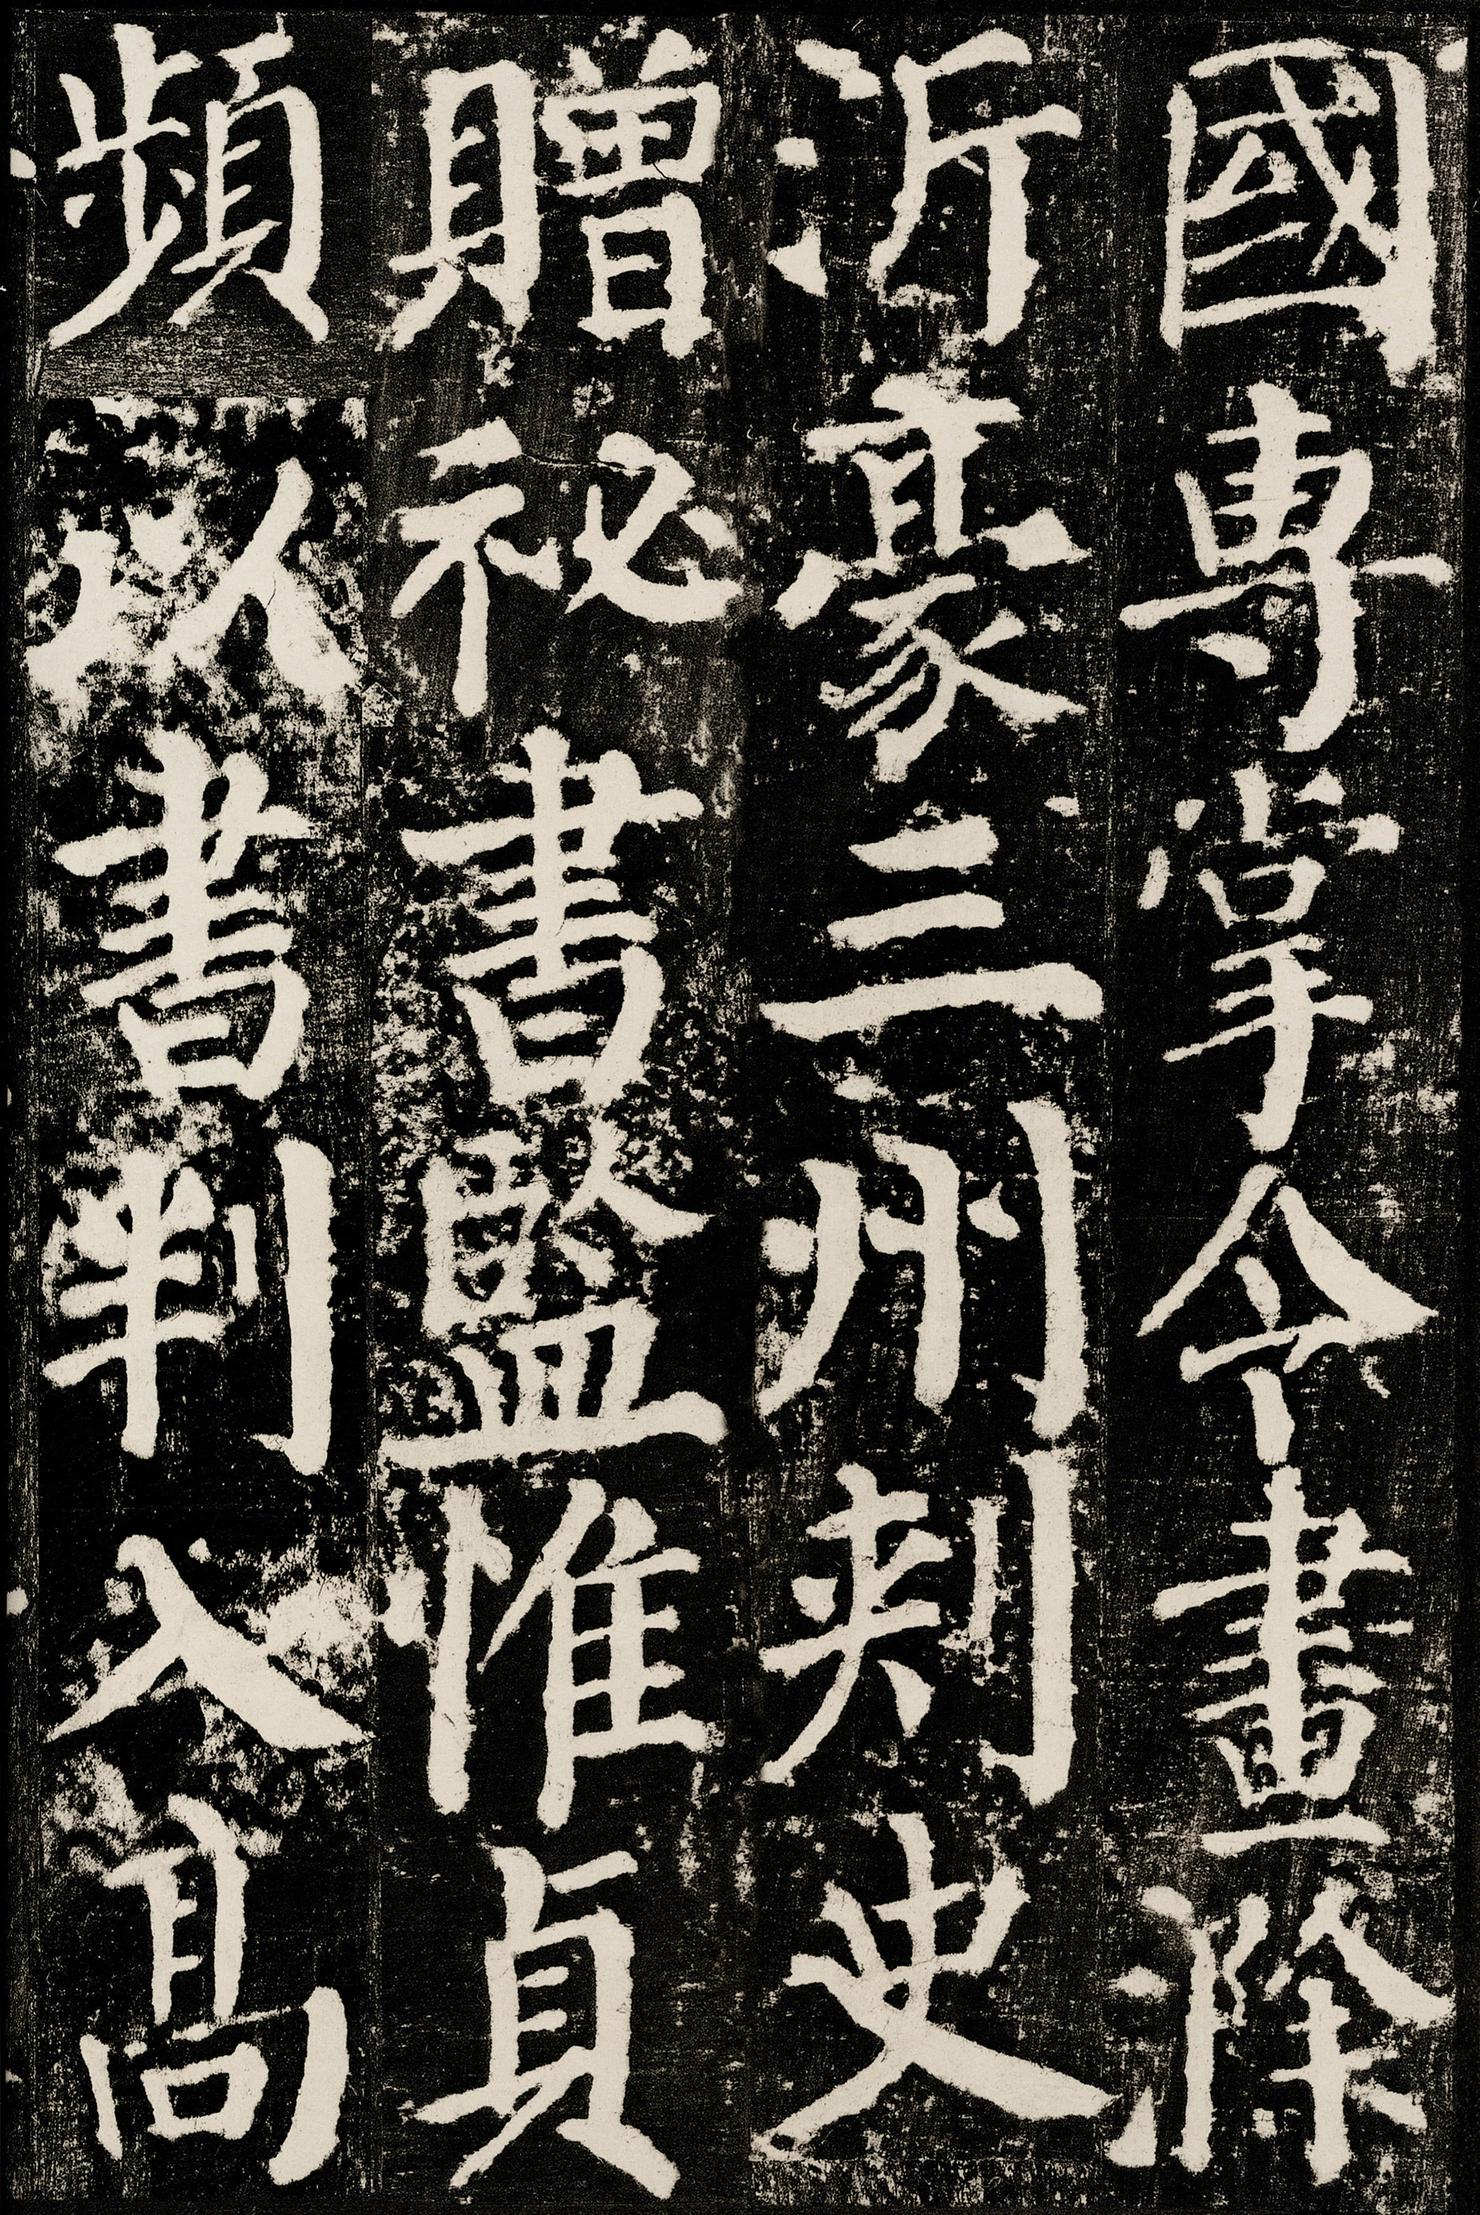 國專掌令畫滁
沂豪三州刺史
贈秘書監惟貞
頻以書判入高